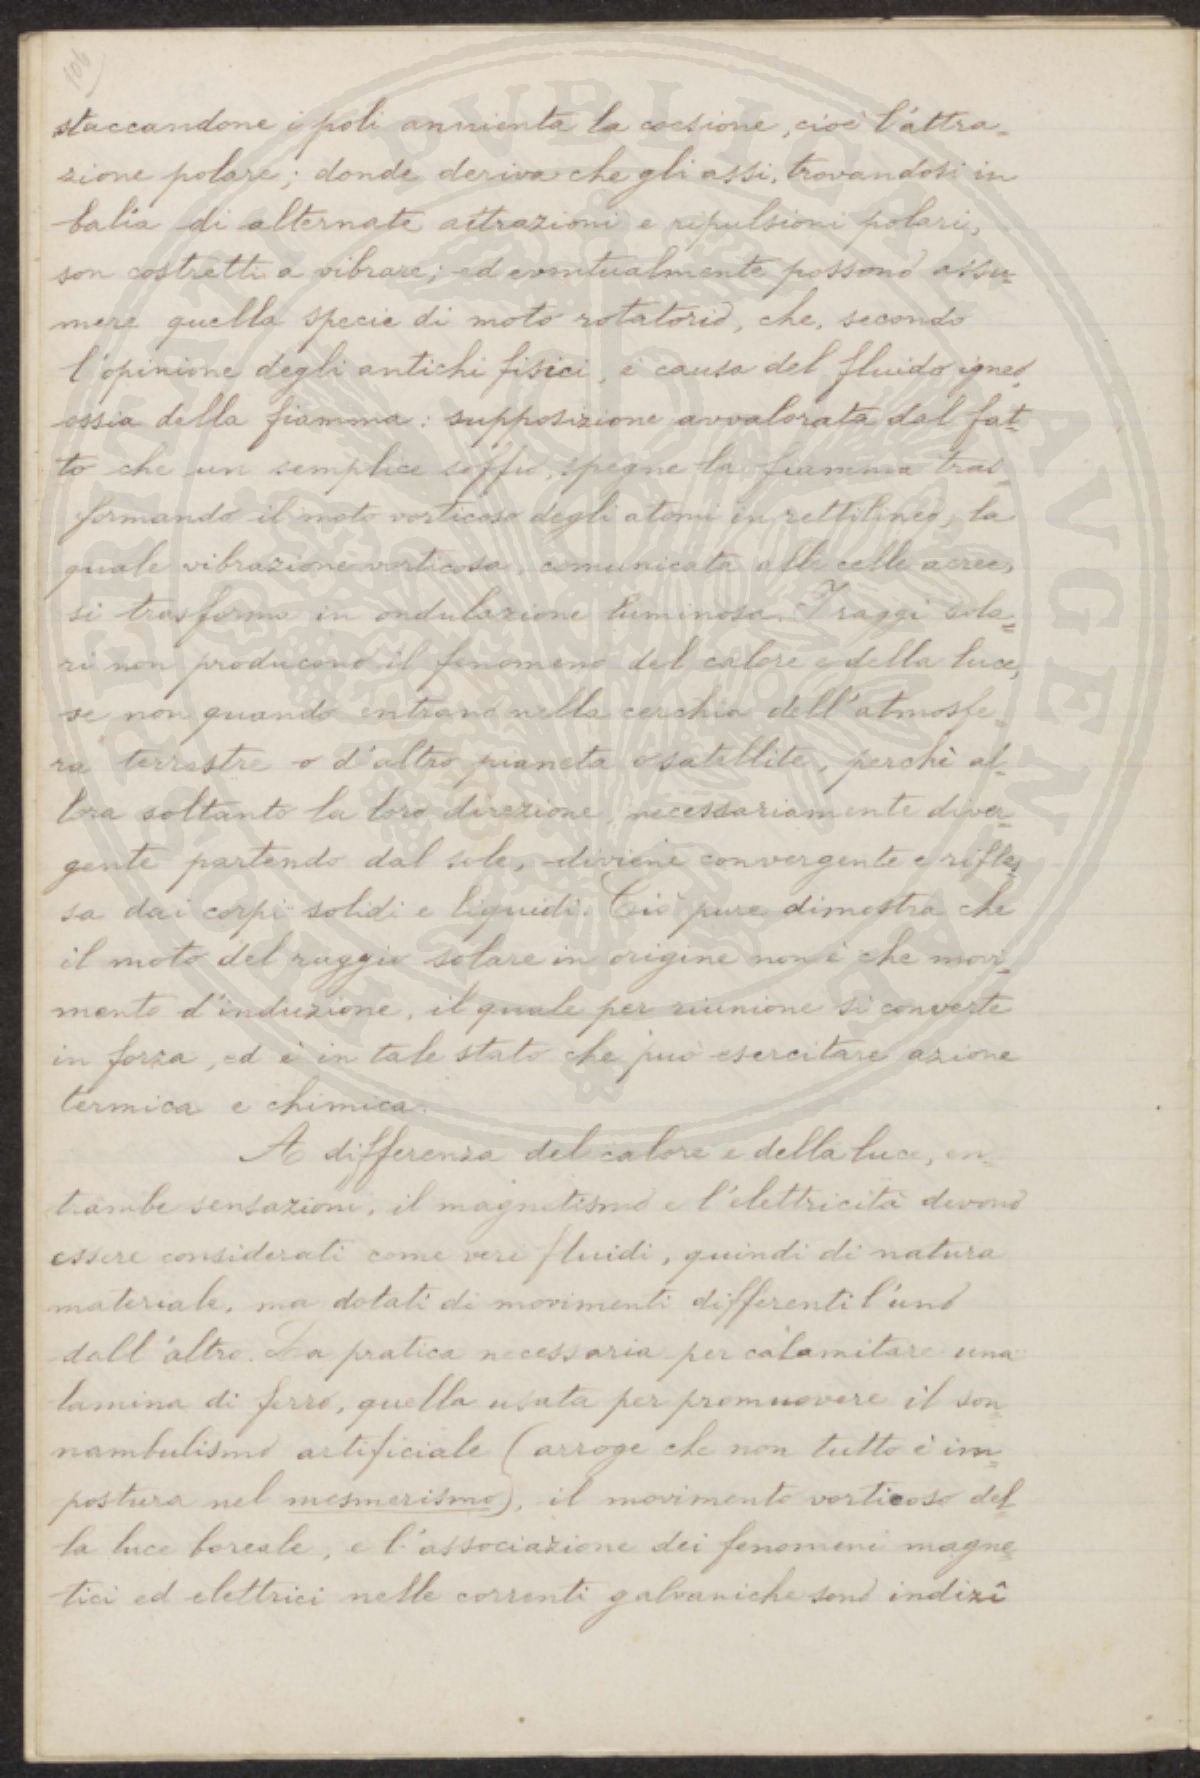 106
staccandone i poli annienta la coesione, cioè l'attra-
zione polare; donde deriva che gli assi, trovandosi in
balìa di alternate attrazioni e ripulsioni polari,
son costretti a vibrare; ed eventualmente possono assu-
mere quella specie di moto rotatorio, che, secondo
l'opinione degli antichi fisici, è causa del fluido igneo,
ossia della fiamma: supposizione avvalorata dal fat-
to che un semplice soffio, spegne la fiamma tras-
formando il moto vorticoso degli atomi in rettilineo, la
quale vibrazione vorticosa, comunicata alle celle aeree,
si trasforma in ondulazione luminosa. I raggi sola-
ri non producono il fenomeno del calore e della luce,
se non quando entrano nella cerchia dell'atmosfe-
ra terrestre o d'altro pianeta o satellite, perchè al-
lora soltanto la loro direzione, necessariamente diver-
gente partendo dal sole, diviene convergente e rifles-
sa dai corpi solidi e liquidi. Ciò pure dimostra che
il moto del raggio solare in origine non è che movi-
mento d'induzione, il quale per riunione si converte
in forza, ed è in tale stato che può esercitare azione
termica e chimica.
A differenza del calore e della luce, en-
trambe sensazioni, il magnetismo e l'elettricità devono
essere considerati come veri fluidi, quindi di natura
materiale, ma dotati di movimenti differenti l'uno
dall'altro. La pratica necessaria per calamitare una
lamina di ferro, quella usata per promuovere il son-
nambulismo artificiale (arroge che non tutto è im-
postura nel mesmerismo), il movimento vorticoso del-
la luce boreale, e l'associazione dei fenomeni magne-
tici ed elettrici nelle correnti galvaniche sono indizî